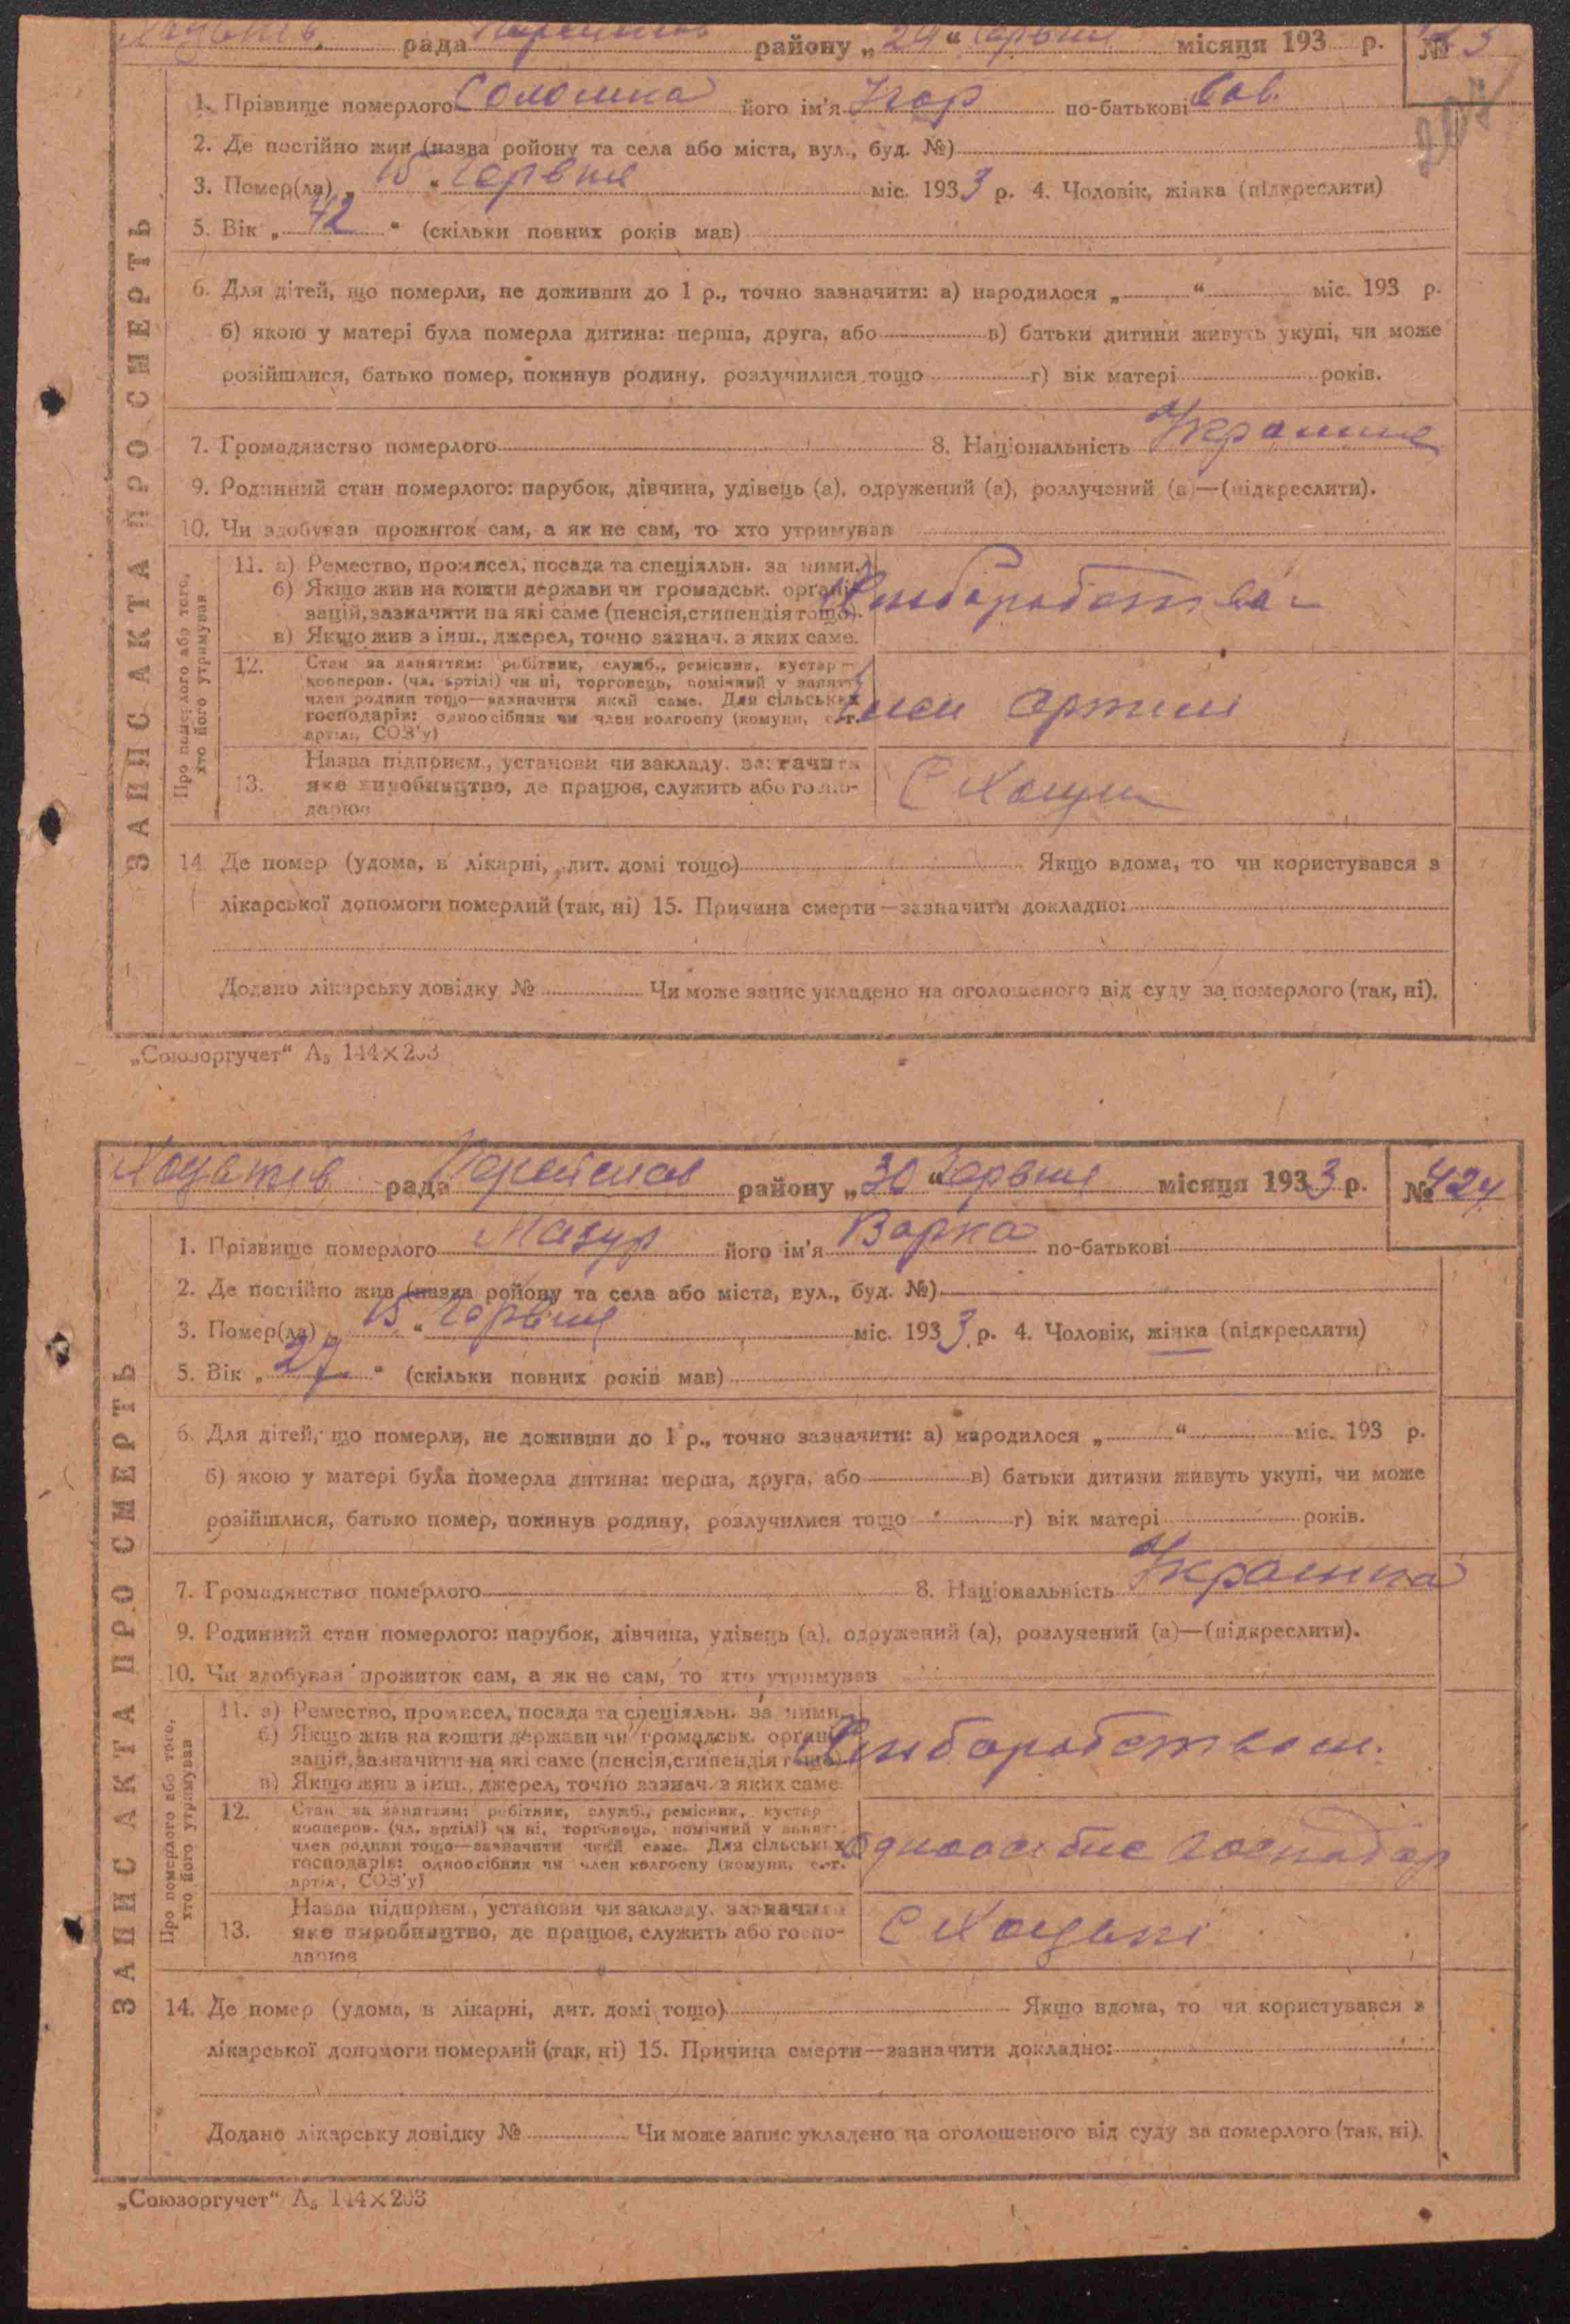 рада району „ 29 “ червня місяця 193 р. №
1. Прізвище померлого Соломка його ім'я Ігор по-батькові Сав.
2. Де постійно жив (назва району та села або міста, вул., буд. №)
3. Помер(ла) „ 15 “ Червня міс. 1933 р. 4. Чоловік, жінка (підкреслити)
5. Вік „ 42 “ (скільки повних років мав)
6. Для дітей, що померли, не доживши до 1 р., точно зазначити: а) народилося „ “ міс. 193 р.
б) якою у матері була померла дитина: перша, друга, або в) батьки дитини живуть укупі, чи може
розійшлися, батько помер, покинув родину, розлучилися тощо г) вік матері років.
7. Громадянство померлого 8. Національність
9. Родинний стан померлого: парубок, дівчина, удівець (а), одружений (а), розлучений (а)—(підкреслити).
10. Чи здобував прожиток сам, а як не сам, то хто утримував
ЗАПИС АКТА ПРО СМЕРТЬ
Про померлого або того,
хто його утримував
11. а) Ремество, промисел, посада та спеціяльн. за ними.
б) Якщо жив на кошти держави чи громадськ. органі-
зацій, зазначити на які саме (пенсія, стипендія тощо).
в) Якщо жив з інш., джерел, точно зазнач. з яких саме.
12. Стан за заняттям: робітник, служб., ремісник, кустар—
кооперов. (чл. артілі) чи ні, торговець, помічний у занятті
член родини тощо—зазначити який саме. Для сільських
господарів: одноосібник чи член колгоспу (комуни, с.-г.
артілі, СОЗ'у)
член артілі
Назва підприєм., установи чи закладу, зазначити
13. яке виробництво, де працює, служить або госпо-
дарює
14. Де помер (удома, в лікарні, дит. домі тощо) Якщо вдома, то чи користувався з
лікарської допомоги померлий (так, ні) 15. Причина смерти—зазначити докладно:
Додано лікарську довідку № Чи може запис укладено на оголошеного від суду за померлого (так, ні).
„Союзоргучет“ А₅ 144×203
Хоцьків рада району „ 30 “ червня місяця 1933 р. № 424
1. Прізвище померлого Мазур його ім'я Варка по-батькові
2. Де постійно жив (назва району та села або міста, вул., буд. №)
3. Помер(ла) „ 15 “ Червня міс. 1933 р. 4. Чоловік, жінка (підкреслити)
5. Вік „ 27 “ (скільки повних років мав)
6. Для дітей, що померли, не доживши до 1 р., точно зазначити: а) народилося „ “ міс. 193 р.
б) якою у матері була померла дитина: перша, друга, або в) батьки дитини живуть укупі, чи може
розійшлися, батько помер, покинув родину, розлучилися тощо г) вік матері років.
7. Громадянство померлого 8. Національність Українка
9. Родинний стан померлого: парубок, дівчина, удівець (а), одружений (а), розлучений (а)—(підкреслити).
10. Чи здобував прожиток сам, а як не сам, то хто утримував
ЗАПИС АКТА ПРО СМЕРТЬ
Про померлого або того,
хто його утримував
11. а) Ремество, промисел, посада та спеціяльн. за ними.
б) Якщо жив на кошти держави чи громадськ. органі-
зацій, зазначити на які саме (пенсія, стипендія тощо).
в) Якщо жив з інш., джерел, точно зазнач. з яких саме.
Хліборобством.
12. Стан за заняттям: робітник, служб., ремісник, кустар
кооперов. (чл. артілі) чи ні, торговець, помічний у занятті
член родини тощо—зазначити який саме. Для сільських
господарів: одноосібник чи член колгоспу (комуни, с.-г.
артілі, СОЗ'у)
господар
Назва підприєм., установи чи закладу, зазначити
13. яке виробництво, де працює, служить або госпо-
дарює
С Хоцьки
14. Де помер (удома, в лікарні, дит. домі тощо) Якщо вдома, то чи користувався з
лікарської допомоги померлий (так, ні) 15. Причина смерти—зазначити докладно:
Додано лікарську довідку № Чи може запис укладено на оголошеного від суду за померлого (так, ні).
„Союзоргучет“ А₅ 144×203